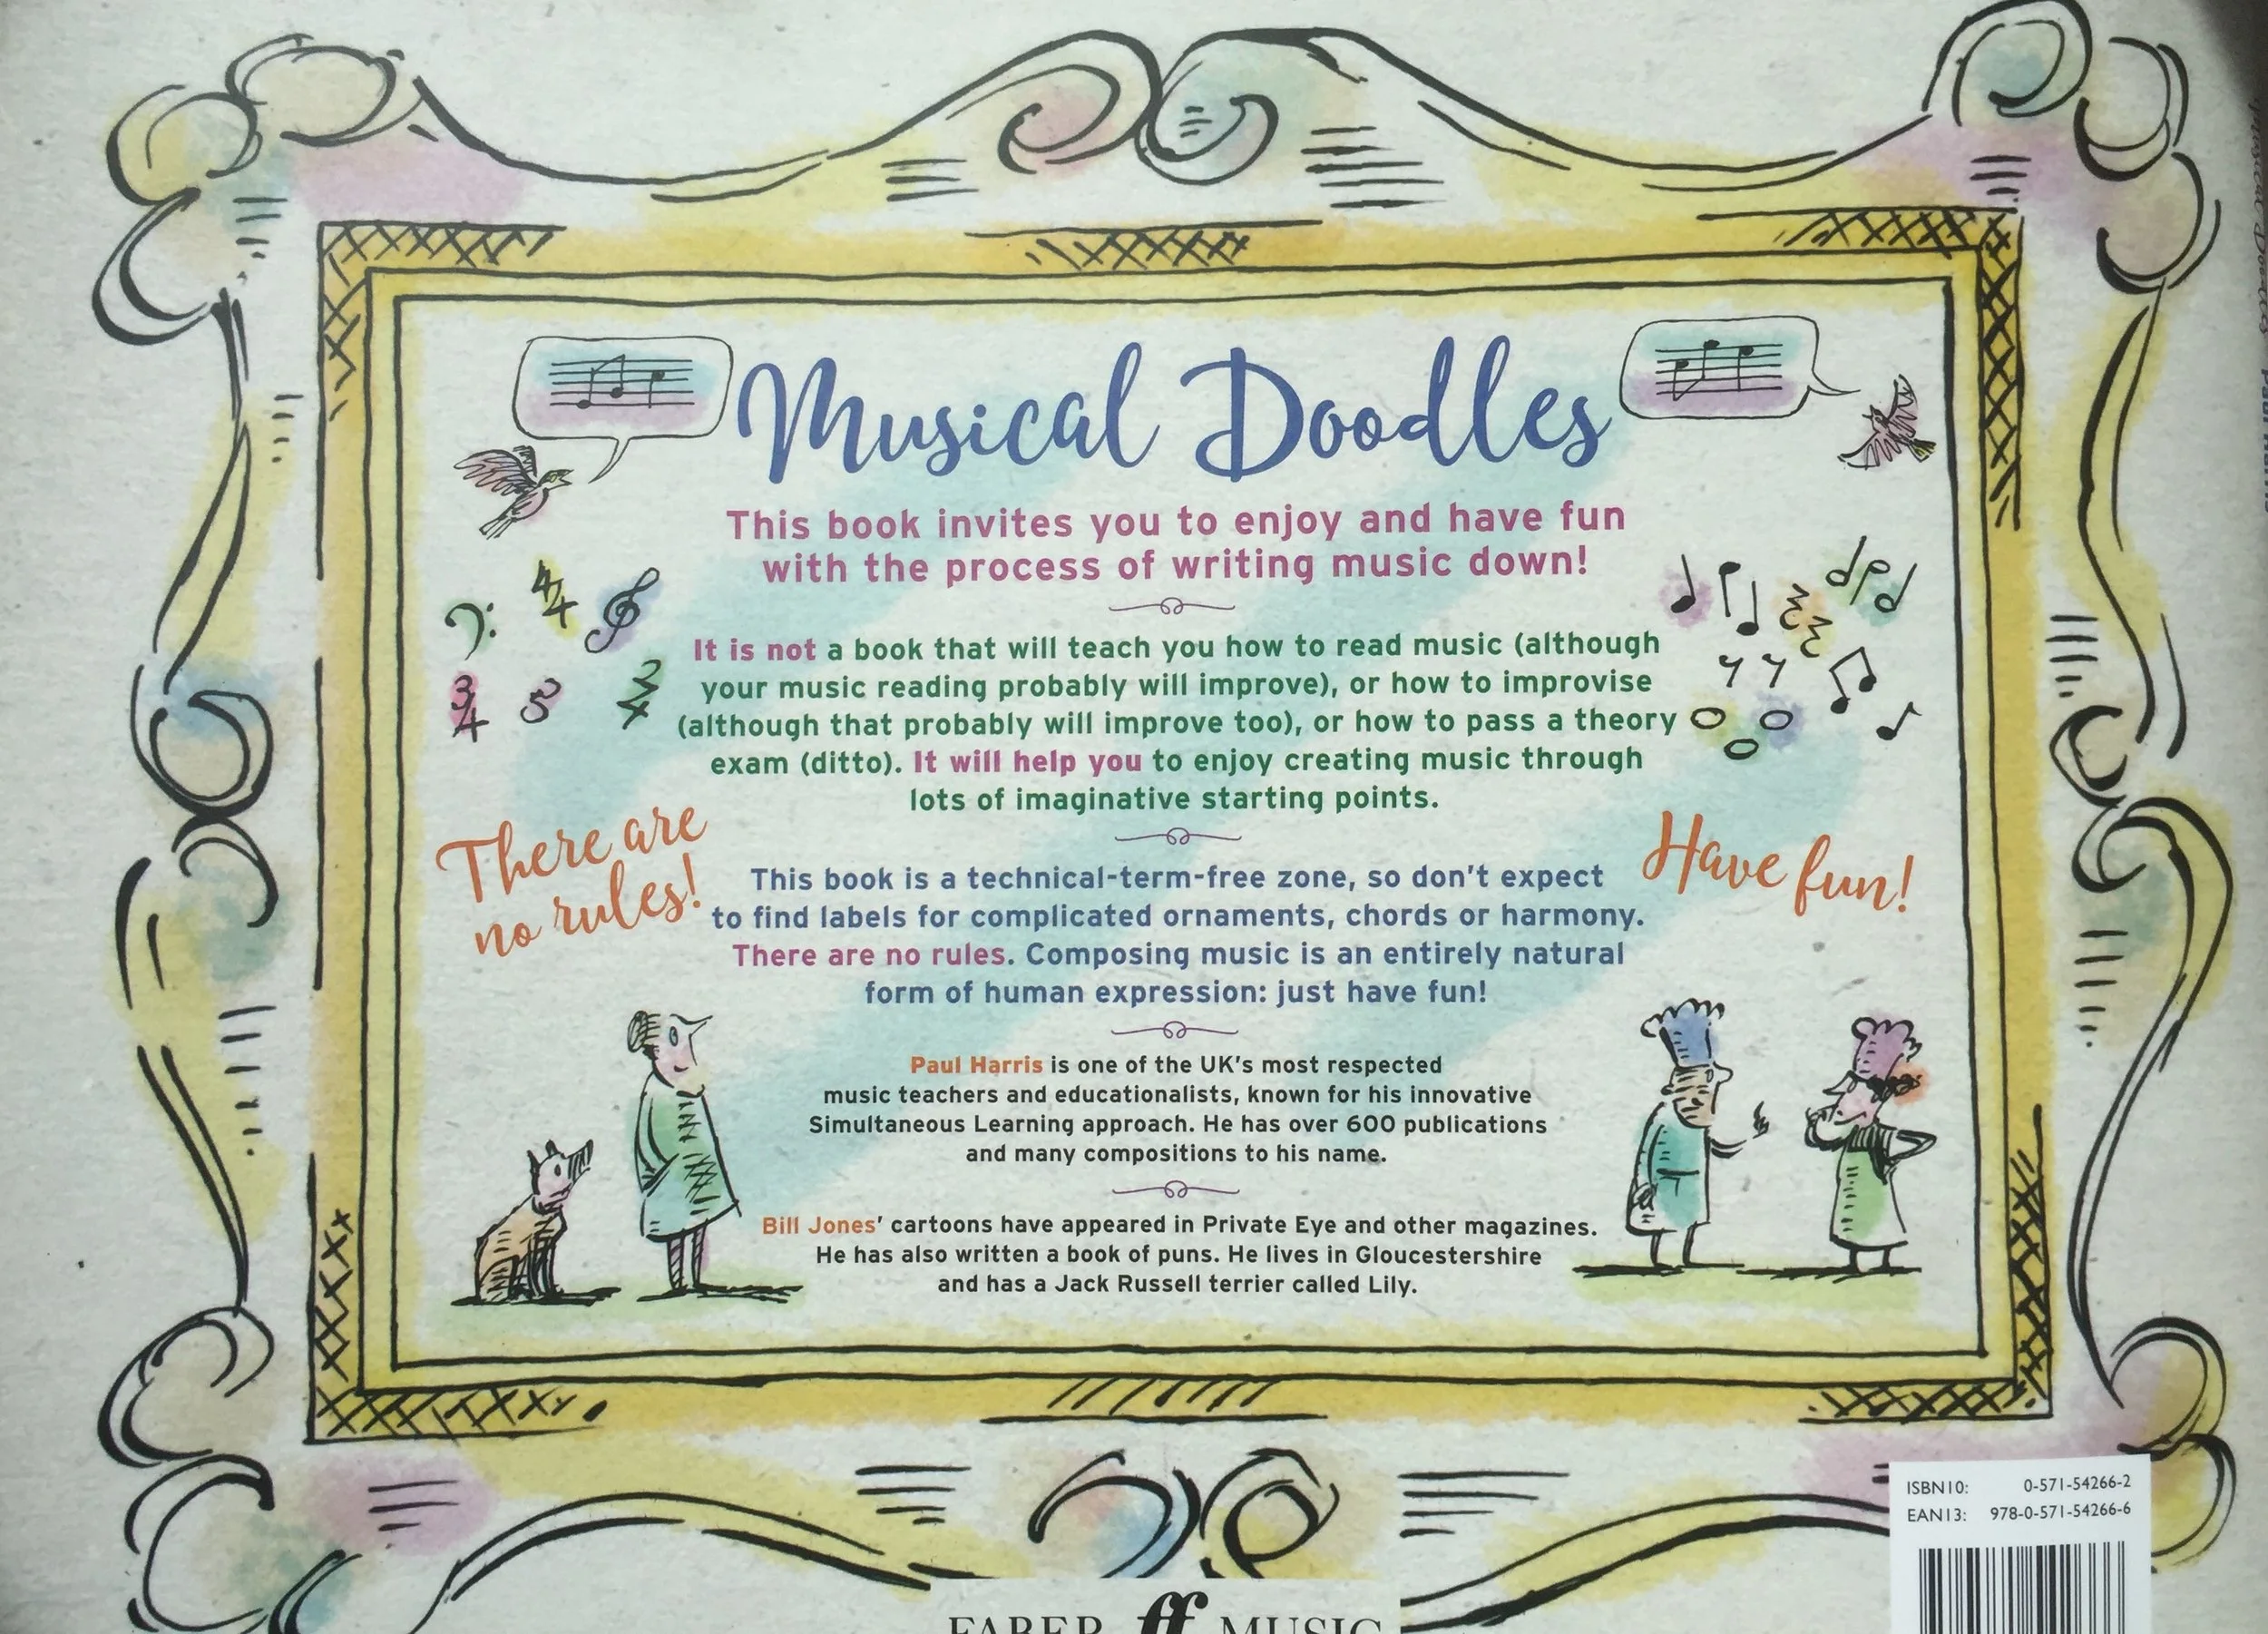 Musical Doodles
This book invites you to enjoy and have fun
with the process of writing music down!
It is not a book that will teach you how to read music (although
your music reading probably will improve), or how to improvise
(although that probably will improve too), or how to pass a theory
exam (ditto). It will help you to enjoy creating music through
lots of imaginative starting points.
There are
no rules!
Have fun!
This book is a technical-term-free zone, so don't expect
to find labels for complicated ornaments, chords or harmony.
There are no rules. Composing music is an entirely natural
form of human expression: just have fun!
Paul Harris is one of the UK's most respected
music teachers and educationalists, known for his innovative
Simultaneous Learning approach. He has over 600 publications
and many compositions to his name.
Bill Jones' cartoons have appeared in Private Eye and other magazines.
He has also written a book of puns. He lives in Gloucestershire
and has a Jack Russell terrier called Lily.
ISBN10: 0-571-54266-2
EAN13: 978-0-571-54266-6
FABER ff MUSIC